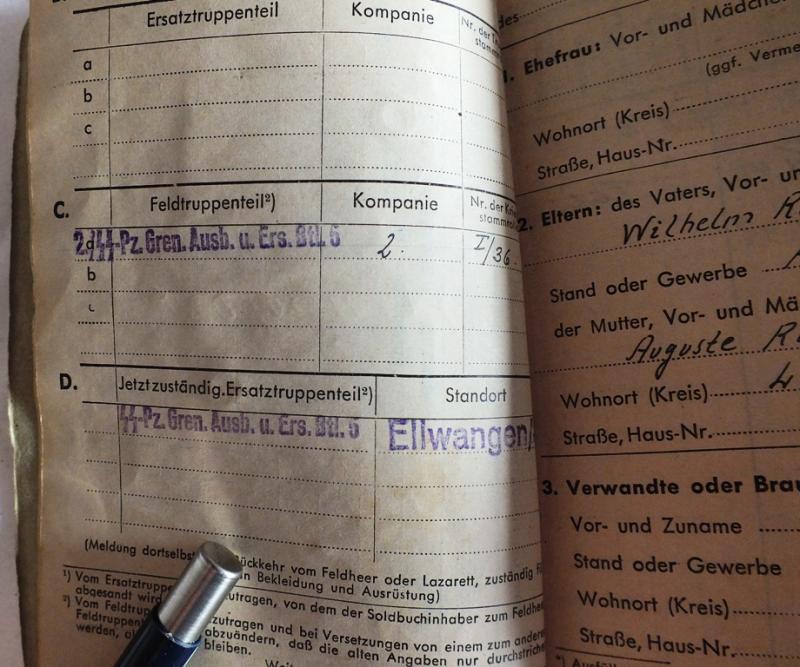 Ersatztruppenteil Kompanie Nr. der
a
b
c
C. Feldtruppenteil²) Kompanie Nr. der
a 2. ᛋᛋ-Pz. Gren. Ausb. u. Ers. Btl. 5 2. I/36
b
c
D. Jetzt zuständig. Ersatztruppenteil²) Standort
ᛋᛋ-Pz. Gren. Ausb. u. Ers. Btl. 5 Ellwangen/
(Meldung dortselbst ückkehr vom Feldheer oder Lazarett, zuständig f
in Bekleidung und Ausrüstung)
¹) Vom Ersatztruppe zutragen, von dem der Soldbuchinhaber zum Feldhee
abgesandt wird
²) Vom Feldtrup zutragen und bei Versetzungen von einem zum andere
Feldtruppent abzuändern, daß die alten Angaben nur durchstriche
werden, bleiben.
des
1. Ehefrau: Vor- und Mädche
(ggf. Verme
Wohnort (Kreis)
Straße, Haus-Nr.
2. Eltern: des Vaters, Vor- u
Wilhelm R
Stand oder Gewerbe
der Mutter, Vor- und Mä
Auguste R
Wohnort (Kreis)
Straße, Haus-Nr.
3. Verwandte oder Brau
Vor- und Zuname
Stand oder Gewerbe
Wohnort (Kreis)
Straße, Haus-Nr.